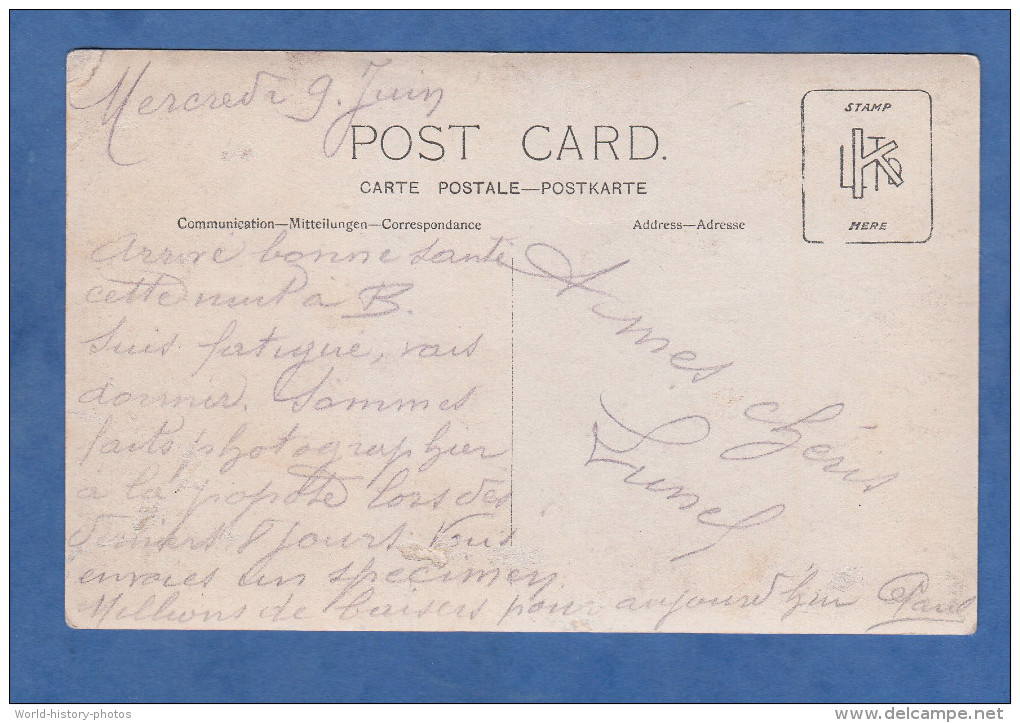 Mercredi 9. Juin
POST CARD.
CARTE POSTALE—POSTKARTE
Communication—Mitteilungen—Correspondance
Address—Adresse
STAMP
HERE
Arrivé bonne santé
cette nuit à B.
Suis fatigué, vais
dormir. Sommes
faits photographier
à la popote lors des
derniers 8 jours. Vous
envoies un specimen.
Millions de baisers pour aujourd'hui Paul
Aimés
chéris
Lunel
World-history-photos
delcampe.net